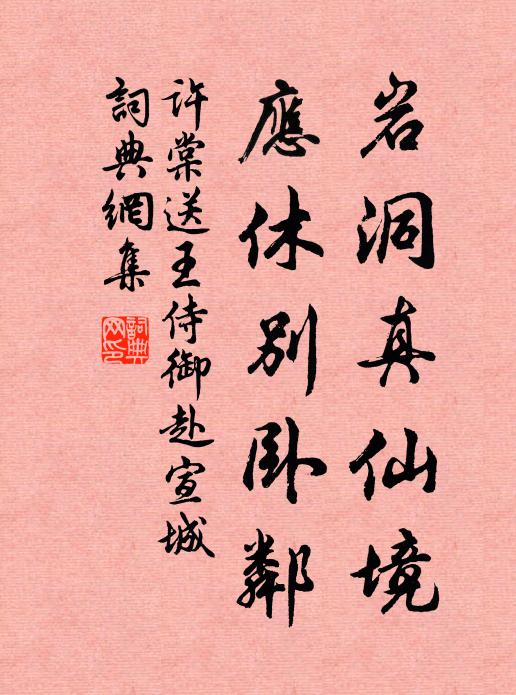 岩洞真仙境
應休別卧鄰
許棠送王侍御赴宣城
詞典網集
詞典网印